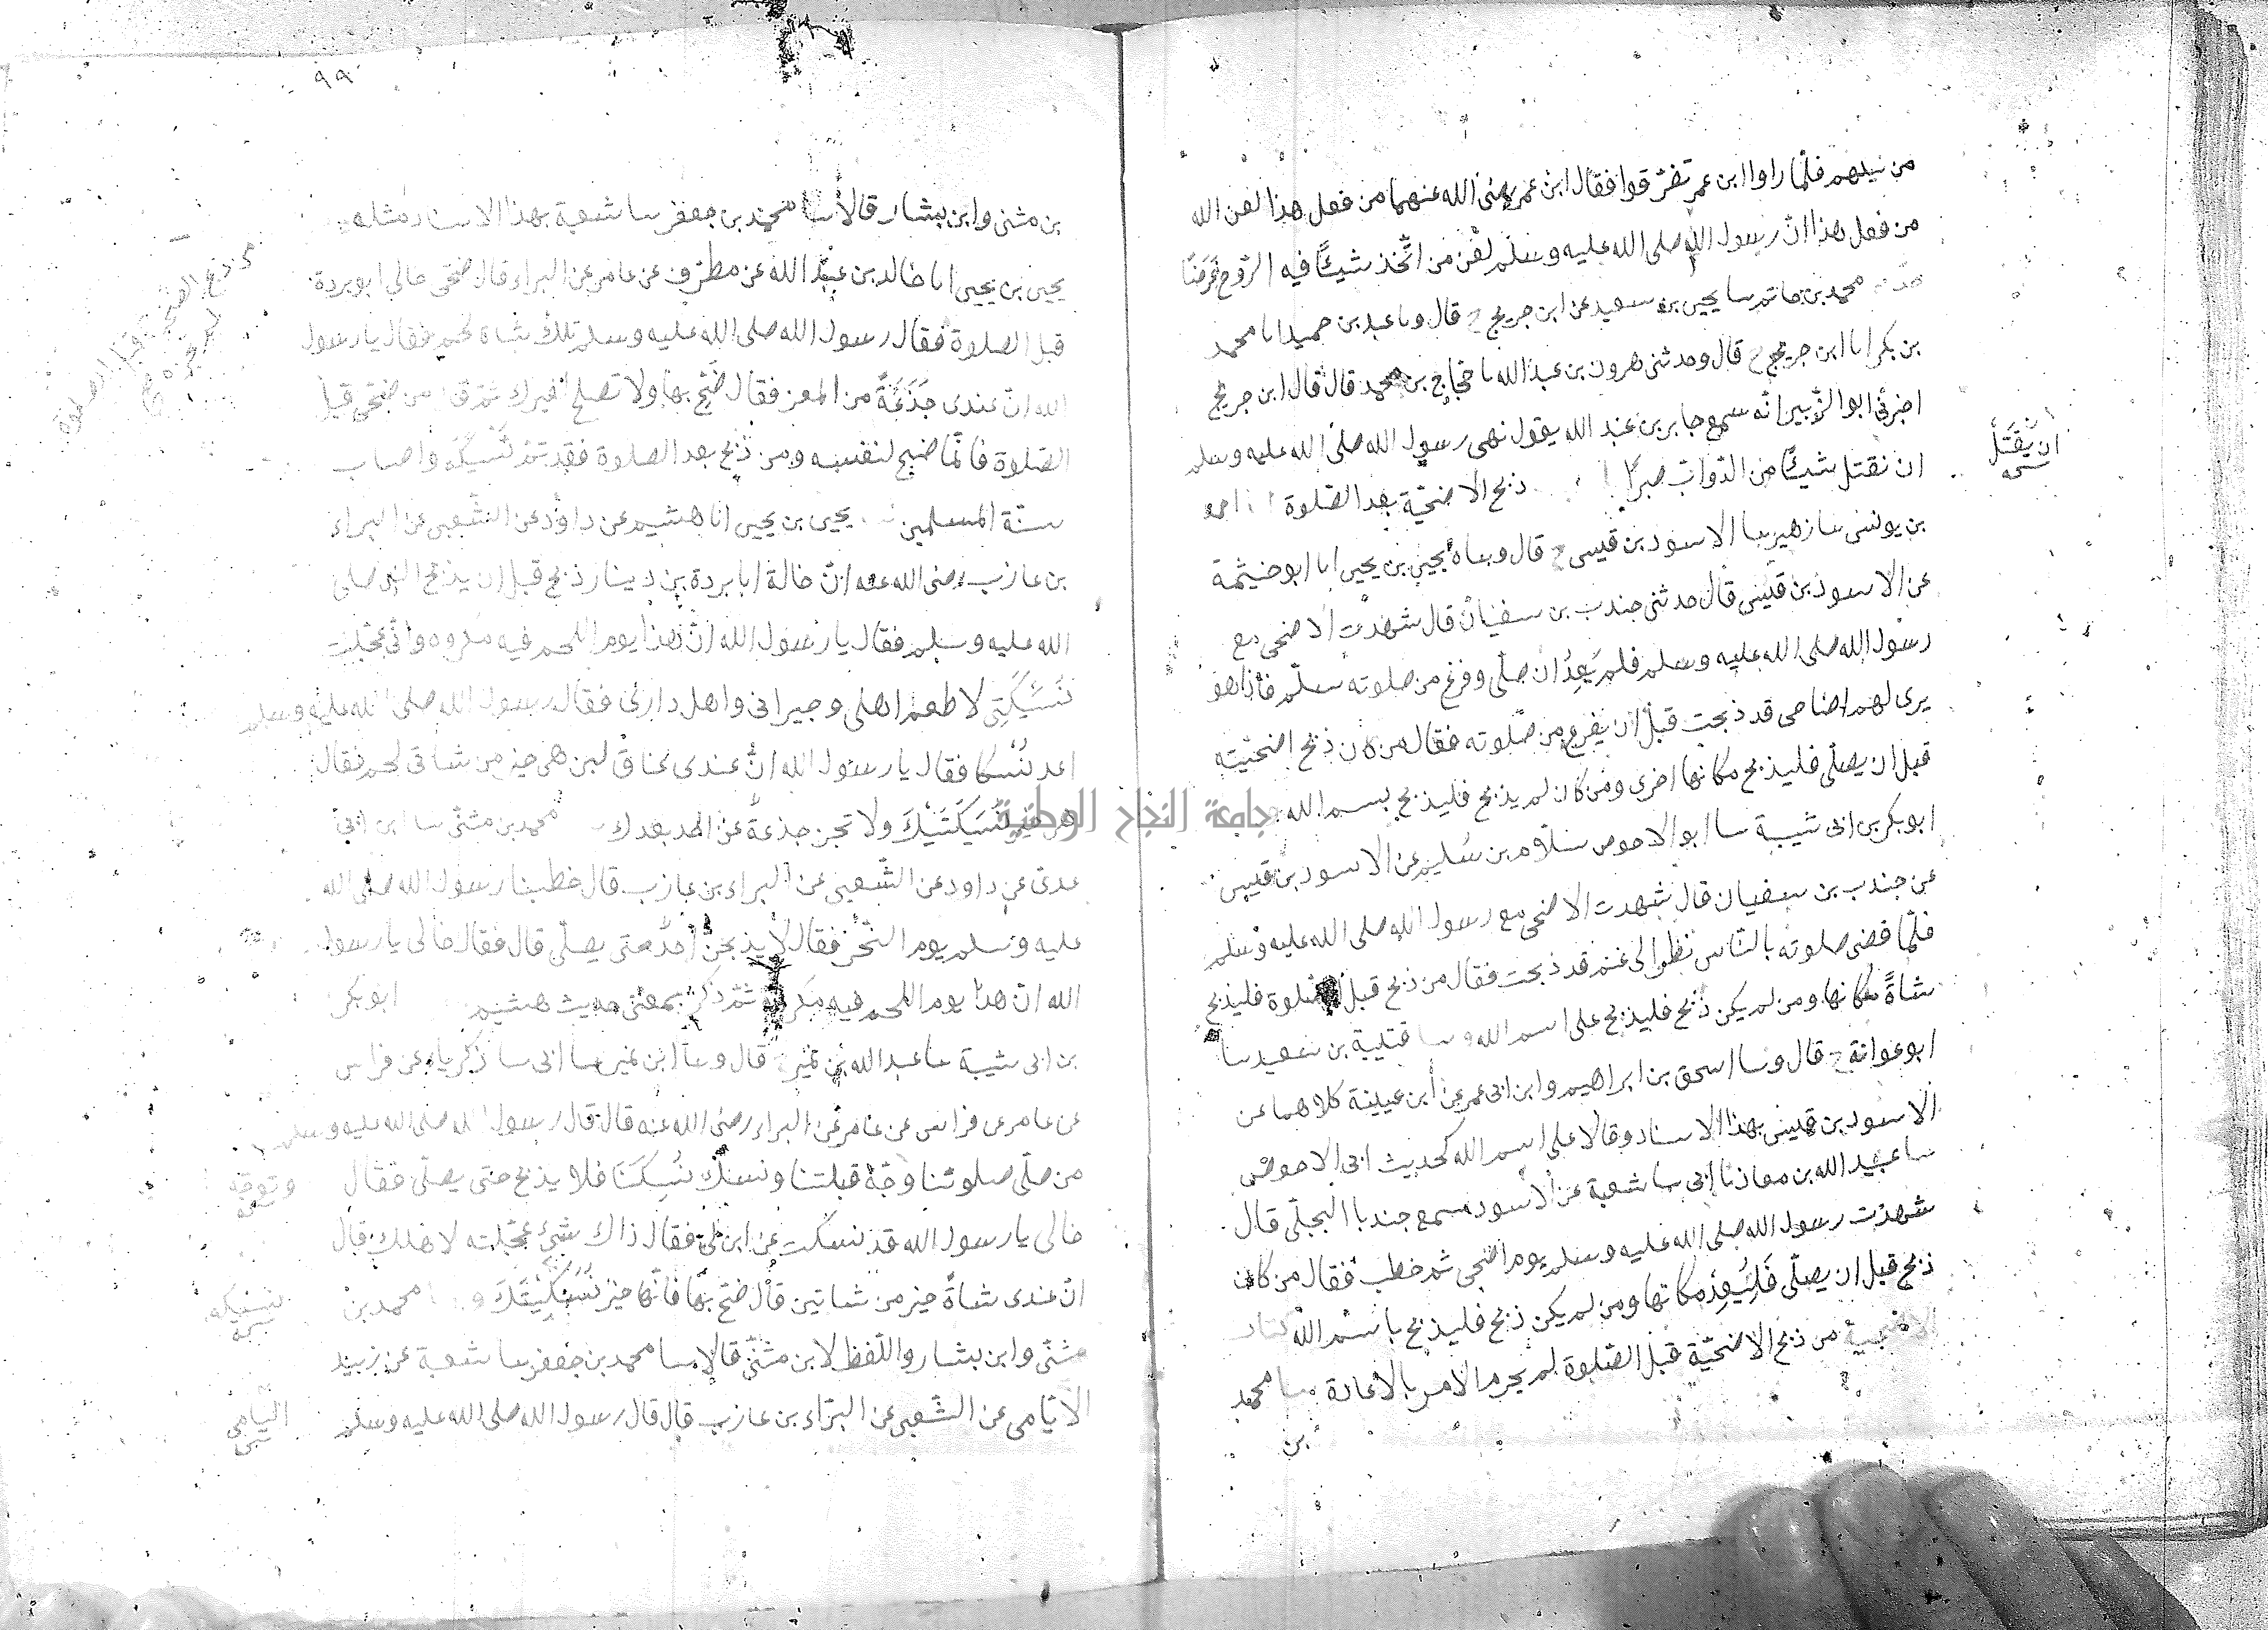 من نبلهم فلما راوا ابن عمر تفرّقوا فقال ابن عمر رضى الله عنهما من فعل هذا لعن الله
من فعل هذا انّ رسول الله صلى الله عليه وسلّم لعن من اتّخذ شيئًا فيه الرّوح غرضًا
محمد بن حاتم سا يحيى بن سعيد عن ابن جريج ح قال وسا عبد بن حميد انا محمد
بن بكر انا ابن جريج ح قال وحدثنى هرون بن عبد الله نا حجّاج بن محمد قال قال ابن جريج
اخبرنى ابو الزّبير انّه سمع جابر بن عبد الله يقول نهى رسول الله صلى الله عليه وسلم
ان نقتل شيئًا من الدّوابّ صبرًا ذبح الاضحيّة بعد الصّلوة
ان يُقتَل
بن يونس سا زهير سا الاسود بن قيس ح قال وساه يحيى بن يحيى انا ابو خيثمة
عن الاسود بن قيس قال حدثنى جندب بن سفيان قال شهدت الاضحى مع
رسول الله صلى الله عليه وسلم فلم يَعدُ ان صلّى وفرغ من صلوته سلّم فاذا هو
يرى لهم اضاحى قد ذبحت قبل ان يفرغ من صلوته فقال من كان ذبح اضحيّته
قبل ان يصلّى فليذبح مكانها اخرى ومن كان لم يذبح فليذبح بسم الله
ابو بكر بن ابى شيبة سا ابو الاحوص سلّام بن سُليم عن الاسود بن قيس
عن جندب بن سفيان قال شهدت الاضحى مع رسول الله صلى الله عليه وسلم
فلمّا قضى صلوته بالنّاس نظر الى غنم قد ذبحت فقال من ذبح قبل الصّلوة فليذبح
شاةً مكانها ومن لم يكن ذبح فليذبح على اسم الله وسا قتيبة بن سعيد سا
ابو عوانة ح قال وسا اسحق بن ابراهيم وابن ابى عمر عن ابن عيينة كلاهما عن
الاسود بن قيس بهذا الاسناد وقالا على اسم الله كحديث ابى الاحوص
سا عبيد الله بن معاذ نا ابى سا شعبة عن الاسود سمع جندبا البجلّى قال
شهدت رسول الله صلى الله عليه وسلم يوم اضحى ثم خطب فقال من كان
ذبح قبل ان يصلّى فَليُعِد مكانها ومن لم يكن ذبح فليذبح باسم الله
من ذبح الاضحيّة قبل الصّلوة لم يجز والامر بالاعادة سا محمد
بن
٩٩
بن مثنى وابن بشار قالا سا محمد بن جعفر سا شعبة بهذا الاسناد مثله
يحيى بن يحيى انا خالد بن عبد الله عن مطرّف عن عامر عن البراء قال ضحّى خالى ابو بردة
قبل الصلوة فقال رسول الله صلى الله عليه وسلم تلك شاة لحم فقال يا رسول
الله انّ عندى جَذَعَةً من المعز فقال ضحّ بها ولا تصلح لغيرك ثم قال من ضحّى قبل
الصّلوة فانّما ضبح لنفسه ومن ذبح بعد الصلوة فقد تمّ نُسُكه واصاب
سنّة المسلمين يحيى بن يحيى انا هشيم عن داوُد عن الشّعبى عن البراء
بن عازب رضى الله عنه انّ خاله ابا بردة بن دينار ذبح قبل ان يذبح النبى صلى
الله عليه وسلم فقال يا رسول الله انّ هذا يوم اللحم فيه مكروه وانّى عجّلت
نَسيكَتِى لاطعم اهلى وجيرانى واهل دارى فقال رسول الله صلى الله عليه وسلم
اعد نُسُكا فقال يا رسول الله انّ عندى عناق لبن هى خير من شاتى لحم فقال
هى خير نَسيكَتَيْكَ ولا تجزى جذعةٌ عن احد بعدك محمد بن مثنّى سا ابن ابى
عدى عن داود عن الشّعبى عن البراء بن عازب قال خطبنا رسول الله صلى الله
عليه وسلم يوم النّحر فقال لا يذبحنّ احدٌ حتى يصلّى قال فقال خالى يا رسول
الله انّ هذا يوم اللحم فيه مكروه ثم ذكر بمعنى حديث هشيم ابو بكر
بن ابى شيبة سا عبد الله بن نمير ح قال وسا ابن نمير سا ابى سا زكرياء عن فراس
عن عامر عن فراس عن عامر عن البراء رضى الله عنه قال قال رسول الله صلى الله عليه وسلم
من صلّى صلوتنا وجّه قبلتنا ونسك نُسكَنا فلا يذبح حتى يصلّى فقال
وتوجّه
خالى يا رسول الله قد نسكت عن ابن لى فقال ذاك شىء عجّلته لاهلك قال
انّ عندى شاةً خير من شاتين قال ضحّ بها فانّها خير نَسيكَتَيْكَ محمد بن
نسيكه
مثنّى وابن بشار واللّفظ لابن مثنّى قالا سا محمد بن جعفر سا شعبة عن زبيد
الايّامى عن الشّعبى عن البرّاء بن عازب قال قال رسول الله صلى الله عليه وسلم
اليامى
جامعة النجاح الوطنية